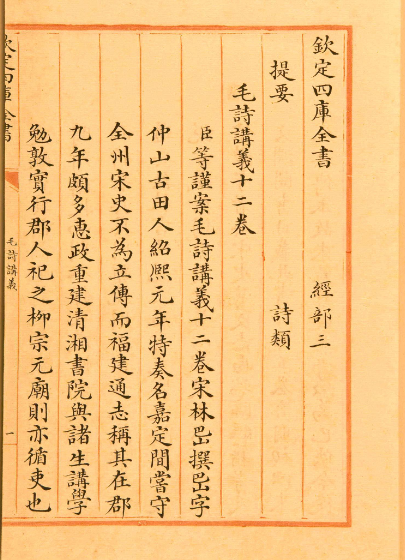 欽定四庫全書　經部三
提要　詩類
毛詩講義十二卷
臣等謹案毛詩講義十二卷宋林岊撰岊字
仲山古田人紹熙元年特奏名嘉定間嘗守
全州宋史不為立傳而福建通志稱其在郡
九年頗多惠政重建清湘書院與諸生講學
勉敦實行郡人祀之柳宗元廟則亦循吏也
欽定四庫全書
毛詩講義
一